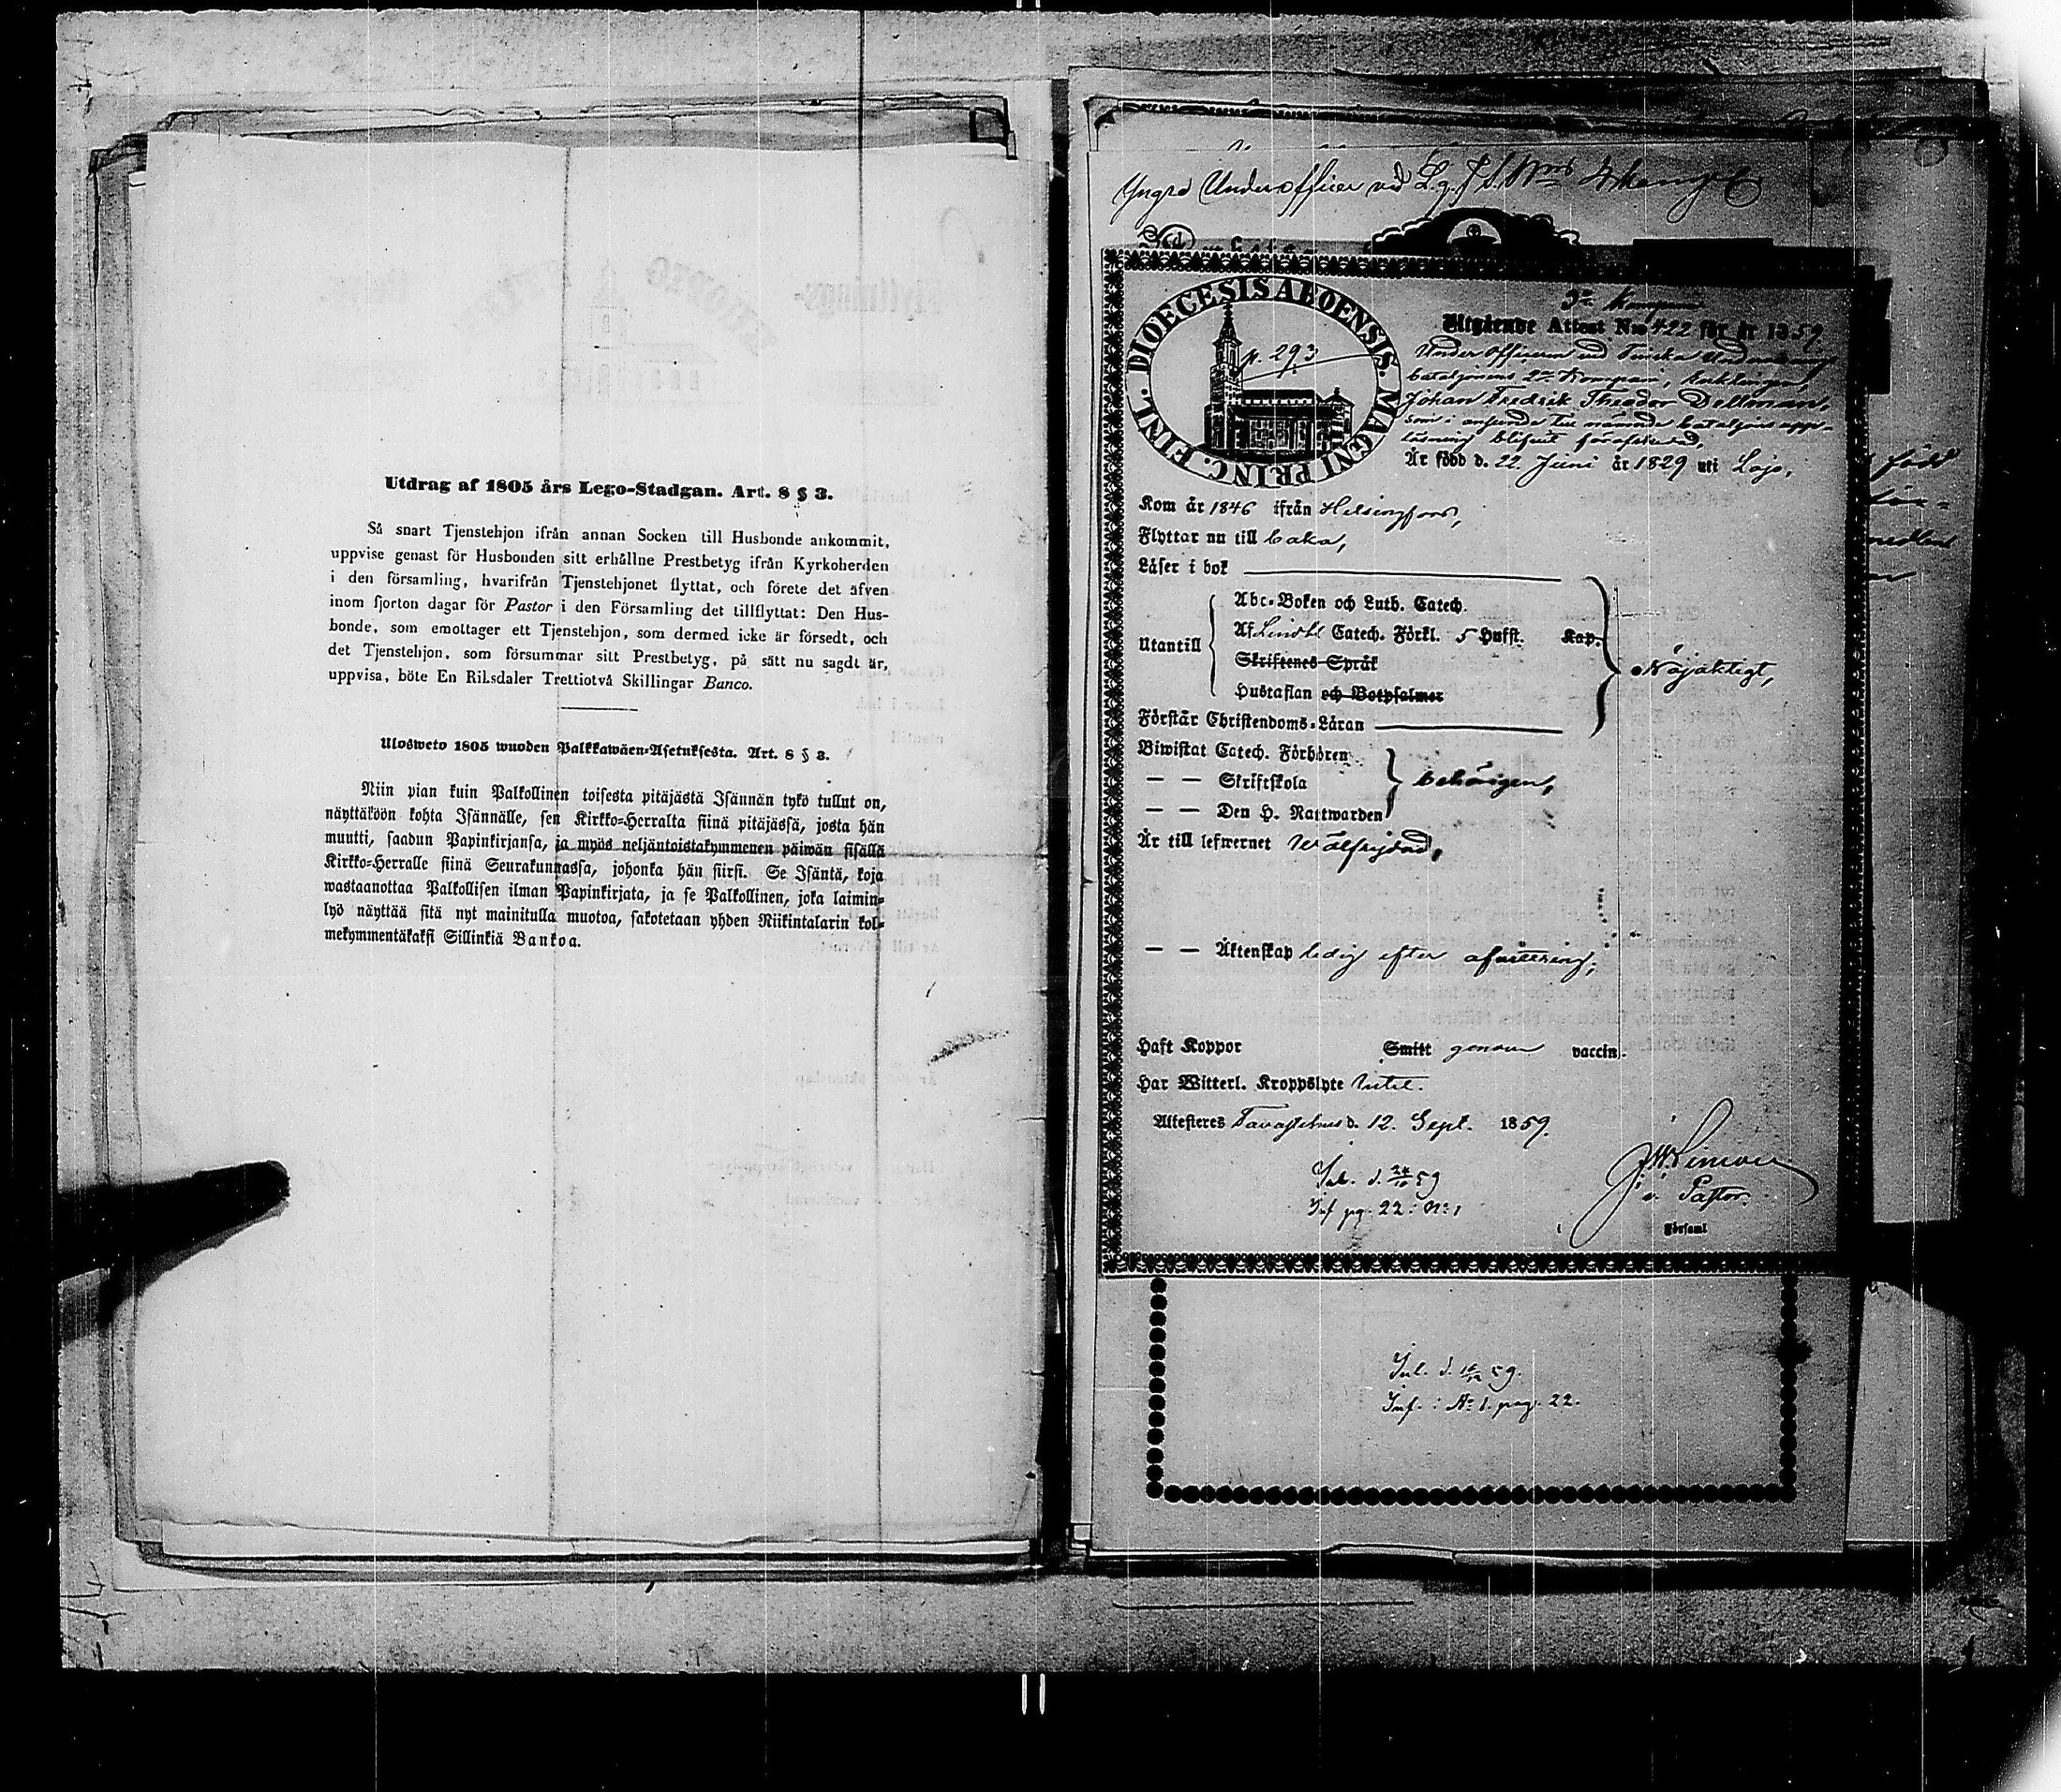 Utdrag af 1805 års Lego-Stadgan. Art. 8 § 3.
Så snart Tjenstehjon ifrån annan Socken till Husbonde ankommit,
uppvise genast för Husbonden sitt erhållne Prestbetyg ifrån Kyrkoherden
i den församling, hvarifrån Tjenstehjonet flyttat, och förete det äfven
inom fjorton dagar för Pastor i den Församling det tillflyttat: Den Hus-
bonde, som emottager ett Tjenstehjon, som dermed icke är försedt, och
det Tjenstehjon, som försummar sitt Prestbetyg, på sätt nu sagdt är,
uppvisa, böte En Riksdaler Trettiotvå Skillingar Banco.
Ulosweto 1805 wuoden Palkkawäen-Asetuksesta. Art. 8 § 3.
Niin pian kuin Palkollinen toisesta pitäjästä Isännän tykö tullut on,
näyttäköön kohta Isännälle, sen Kirkko-Herralta siinä pitäjässä, josta hän
muutti, saadun Papinkirjansa, ja myös neljäntoistakymmenen päiwän sisällä
Kirkko-Herralle siinä Seurakunnassa, johonka hän siirsi. Se Isäntä, koja
wastaanottaa Palkollisen ilman Papinkirjata, ja se Palkollinen, joka laimin-
lyö näyttää sitä nyt mainitulla muotoa, sakotetaan yhden Riikintalarin kol-
mekymmentäkaksi Sillinkiä Bankoa.
Yngre Underofficer vid
DIOECESIS ABOENSIS. MAGNI PRINC. FINL.
p. 293
Utgående Attest Nro 422 för år 1859.
Under Officeren vid Finska
bataljonens 2:dra Kompani, enklingen,
Johan Fredrik Theodor Dellman,
som i anseende till nämnde bataljons upp-
lösning blifvit
Är född d. 22. Juni år 1829 uti Lojo,
Kom år 1846 ifrån Helsingfors,
Flyttar nu till
Läser i bok
Utantill
Abc-Boken och Luth. Catech.
Af Catech. Förkl. 5 Hufst. Kap.
Skriftenes Språk
Hustaflan och Botpsalmer
Nöjaktigt,
Förstår Christendoms-Läran
Biwistat Catech. Förhören
— — Skriftskola
— — Den H. Nattwarden
behörigen,
Är till lefwernet wälfrejdad,
— — Äktenskap ledig efter afvittring,
Haft Koppor Smitt genom vaccin.
Har Witterl. Kroppslyte intet.
Attesteres Tavastehus d. 12. Sept. 1859.
Pastor.
Församl
59
Inf pg. 22: No 1
59.
Inf. i No 1. pag. 22.